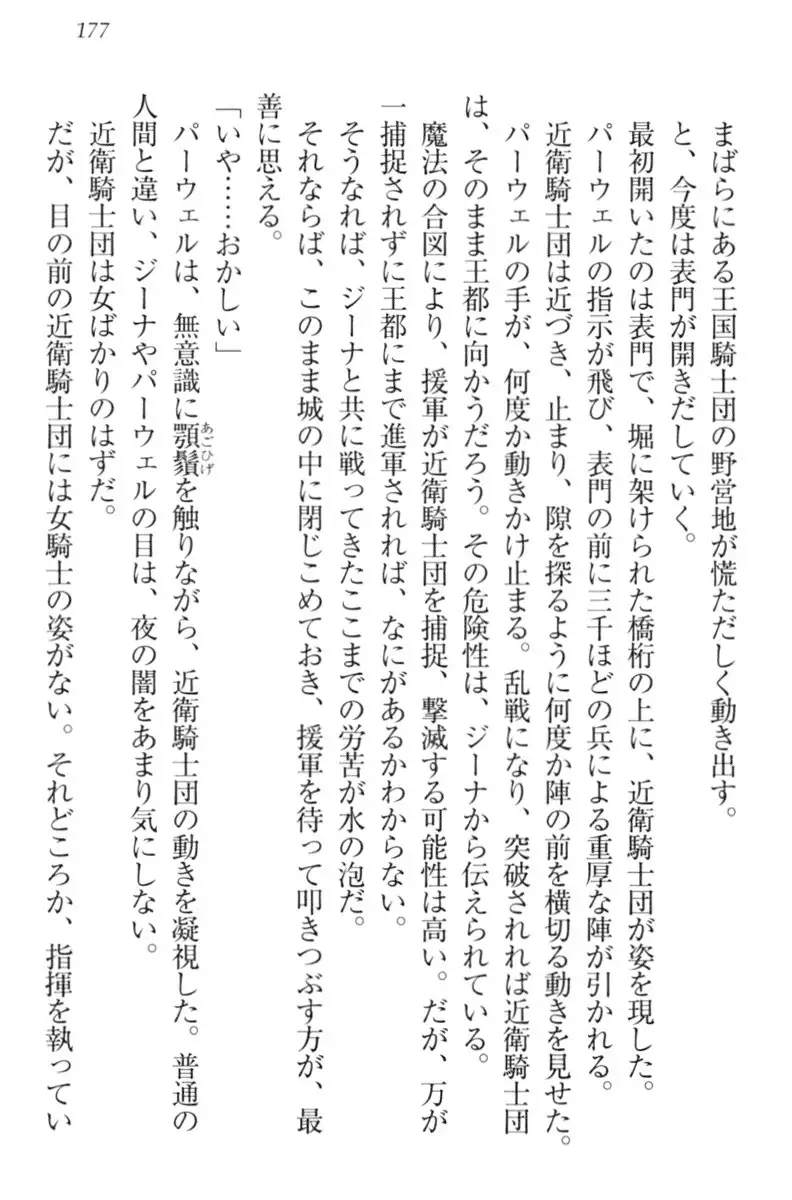 177
まばらにある王国騎士団の野営地が慌ただしく動き出す。
と、今度は表門が開きだしていく。
最初開いたのは表門で、堀に架けられた橋桁の上に、近衛騎士団が姿を現した。
パーウェルの指示が飛び、表門の前に三千ほどの兵による重厚な陣が引かれる。
近衛騎士団は近づき、止まり、隙を探るように何度か陣の前を横切る動きを見せた。
パーウェルの手が、何度か動きかけ止まる。乱戦になり、突破されれば近衛騎士団
は、そのまま王都に向かうだろう。その危険性は、ジーナから伝えられている。
魔法の合図により、援軍が近衛騎士団を捕捉、撃滅する可能性は高い。だが、万が
一捕捉されずに王都にまで進軍されれば、なにがあるかわからない。
そうなれば、ジーナと共に戦ってきたここまでの労苦が水の泡だ。
それならば、このまま城の中に閉じこめておき、援軍を待って叩きつぶす方が、最
善に思える。
「いや……おかしい」
パーウェルは、無意識に顎鬚を触りながら、近衛騎士団の動きを凝視した。普通の
人間と違い、ジーナやパーウェルの目は、夜の闇をあまり気にしない。
近衛騎士団は女ばかりのはずだ。
だが、目の前の近衛騎士団には女騎士の姿がない。それどころか、指揮を執ってい
あごひげ